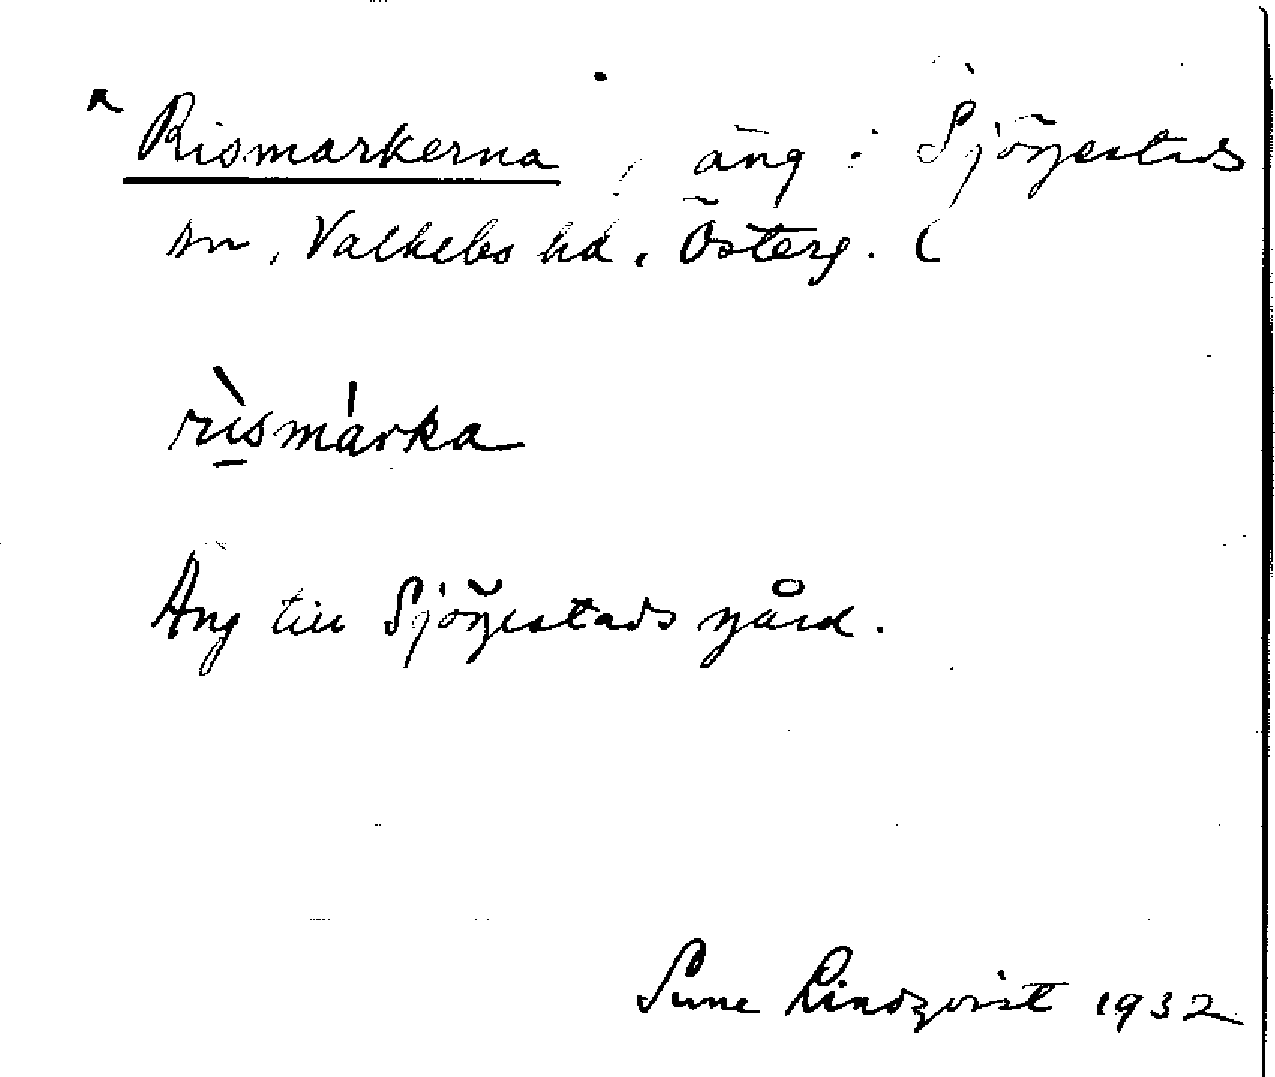 Rismarkerna, äng i Sjögestads
sn, Valkebo hd, Österg. (
rìsmárka
Äng till Sjögestads gård.
Sune Lindqvist 1932